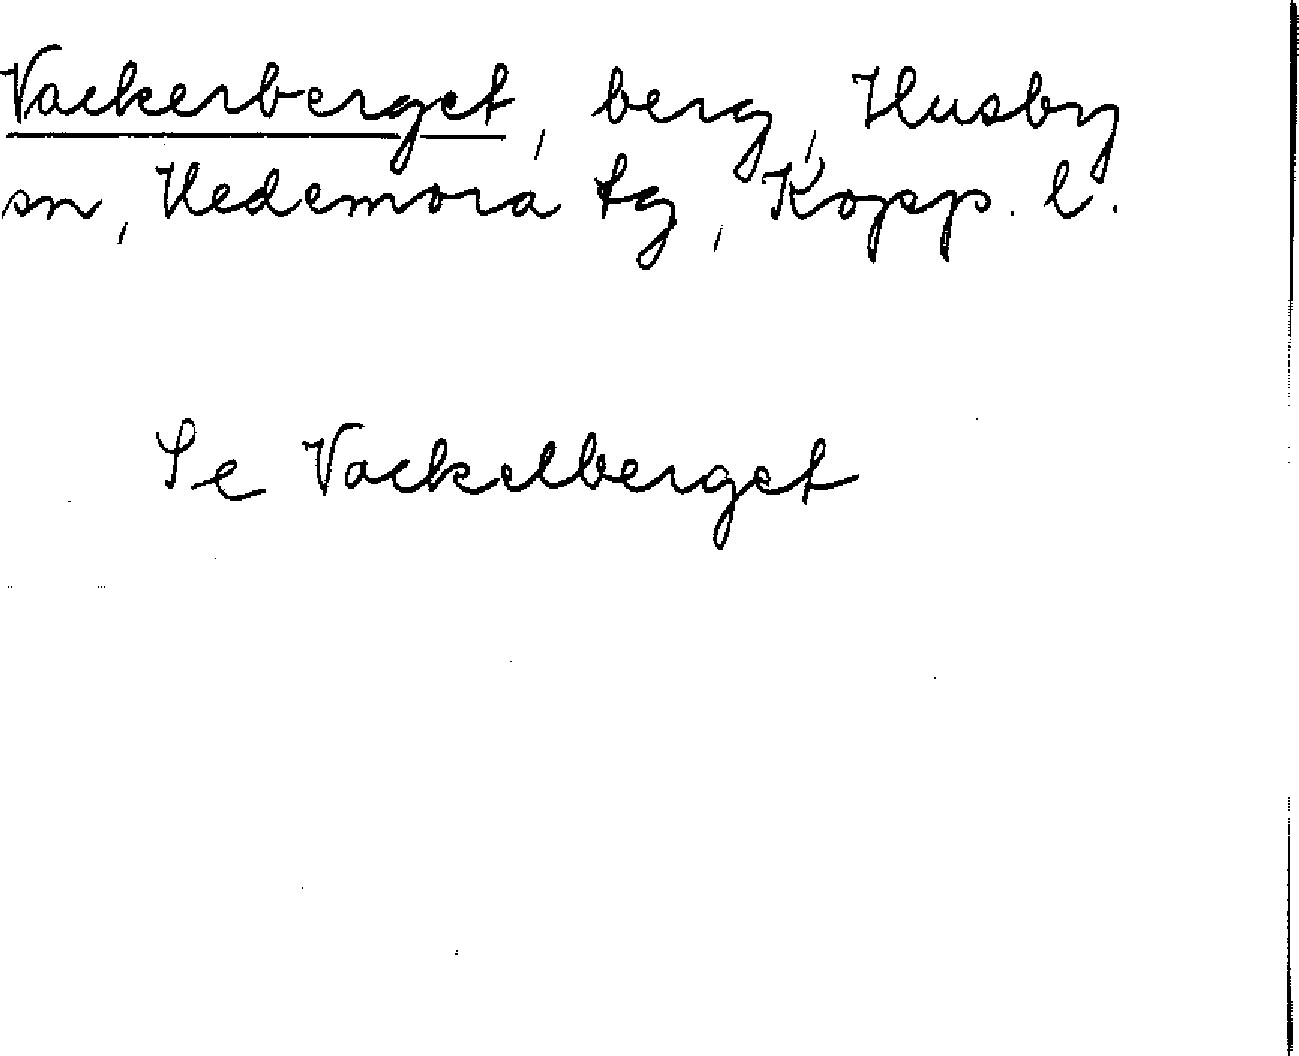 Vackerberget, berg, Husby
sn, Hedemora tg, Kopp. l.
Se Vackelberget